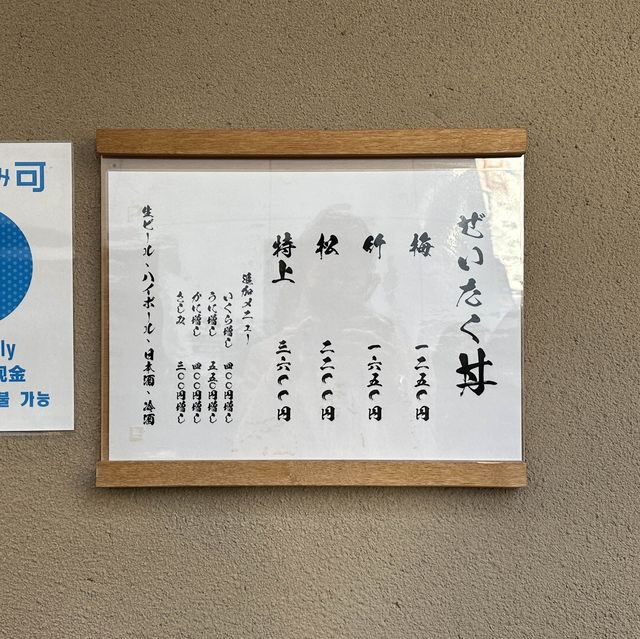 ぜいたく丼
梅 一二五〇円
竹 一六五〇円
松 二二〇〇円
特上 三六〇〇円
追加メニュー
いくら増し 四〇〇円増し
うに増し 五五〇円増し
かに増し 四〇〇円増し
さしみ 三〇〇円増し
生ビール、ハイボール、日本酒、梅酒
み可
ly
现金
불 가능